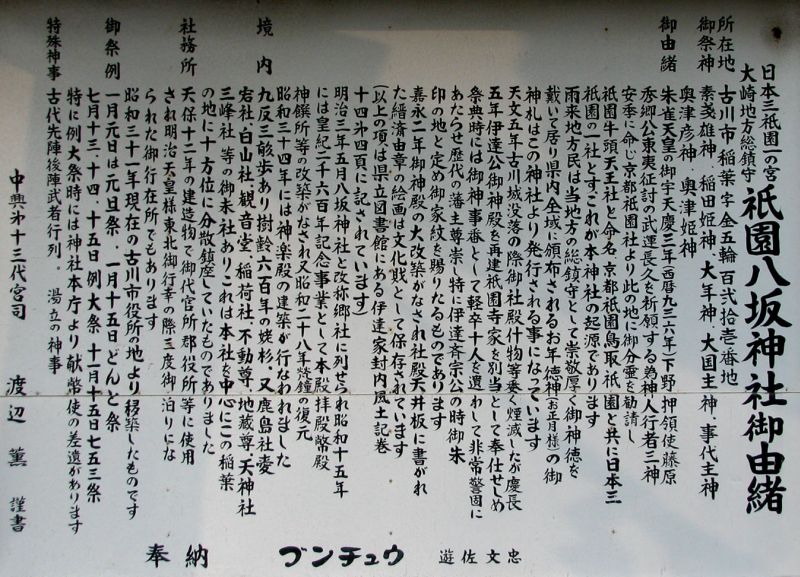 日本三祇園一の宮
大崎地方総鎮守
祇園八坂神社御由緒
所在地 古川市稲葉字金五輪百弐拾壱番地
御祭神 素戔雄神、稲田姫神、大年神、大国主神、事代主神
奥津彦神、奥津姫神
御由緒 朱雀天皇の御宇天慶三年(西暦九三六年)下野ノ押領使藤原
秀郷公東夷征討の武運長久を祈願する為神人行者三神
安季に命じ京都祇園社より此の地に御分霊を勧請し
祇園牛頭天王社と命名、京都祇園鳥取祇園と共に日本三
祇園の一社とす。これが本神社の起源であります
雨来地方民は当地方の総鎮守として崇敬厚く御神徳を
戴いて居り県内全域に頒布されるお年徳神(お正月様)の御
神札はこの神社より発行される事になっています
天文五年古川城没落の際御社殿什物等悉く煙滅したが慶長
五年伊達公御神殿を再建祇園寺家を別当として奉仕せしめ
祭典時には御神事番として軽卒十人を遣わして非常警固に
あたらせ歴代の藩主尊崇し特に伊達斉宗公の時御朱
印の地と定め御家紋を賜りたるものであります
嘉永二年御神殿の大改築がなされ社殿天井板に書かれ
た経済由章の絵画は文化財として保存されています
(以上の項は県立図書館にある伊達家封内風土記巻
十四第四頁に記されています)
明治三年五月八坂神社と改称郷社に列せられ昭和十五年
には皇紀二千六百年記念事業として本殿拝殿幣殿
神饌所等の改築がなされ又昭和二十八年梵鐘の復元
昭和三十四年には神楽殿の建築が行なわれました
境内 九反三畝歩あり樹齢六百年の姥杉、又鹿島社、愛
宕社、白山社、観音堂、稲荷社、不動尊、地蔵尊、天神社
三峰社 等の御末社ありこれは本社を中心にこの稲葉
の地に十方位に分散鎮座していたものでありました
社務所 天保十二年の建造物で御代官所郡役所等に使用
され明治天皇様東北御行幸の際三度御一泊りにな
られた御行在所でもあります
昭和三十一年現在の古川市役所の地より移築したものです
御祭例 一月元日は元旦祭、一月十五日どんと祭
七月十三、十四、十五日例大祭、十一月十五日七五三祭
特に例大祭時には神社本庁より献幣使の差遣があります
特殊神事 古代先陣後陣武者行列。湯立の神事
中興第十三代宮司 渡辺 薫 謹書
奉納 ブンチュウ 遊佐文忠